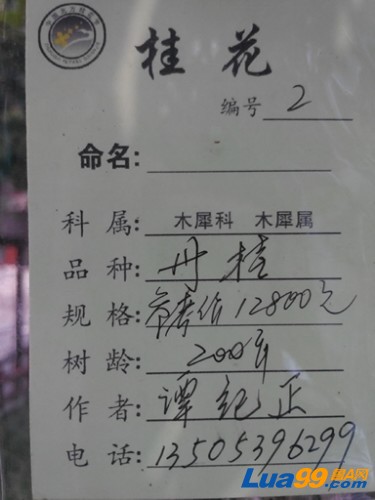 桂花
编号 2
命名:
科属: 木犀科 木犀属
品种: 丹桂
规格: 参考价12800元
树龄: 200年
作者: 谭纪正
电话: 13505396299
Lua99国A网.COM